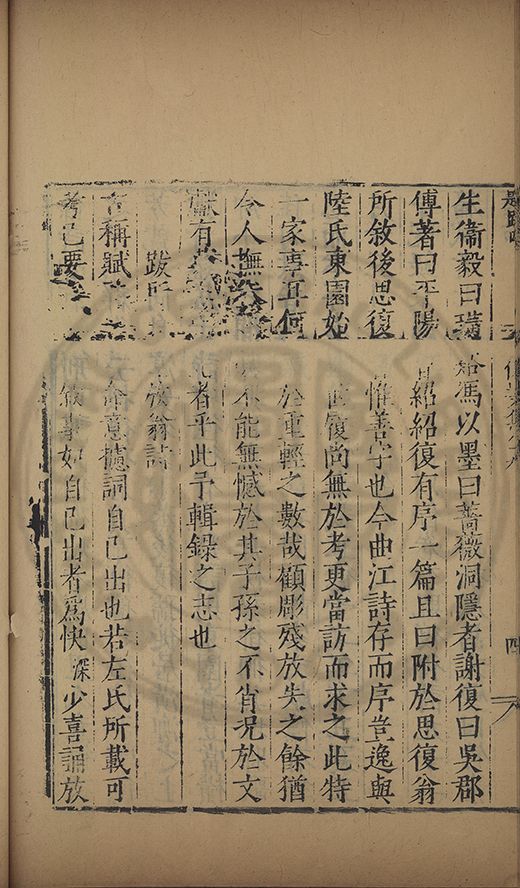 生衞毅曰瑞 嵇馮以墨曰薔薇洞隱者謝復曰吳郡
傅著曰平陽 紹紹復有序一篇且曰附於思復翁
所敘後思復 惟善字也今曲江詩存而序豈逸與
陸氏東園始 復尚無於考更當訪而求之此特
一家事耳何 於重輕之數哉顧彫殘放失之餘猶
令人撫 不能無憾於其子孫之不肖况於文
獻有 者乎此予輯錄之志也
跋 放翁詩
古稱賦 命意攄詞自己出也若左氏所載可
考已要 敘事如自己出者爲快深少喜誦放